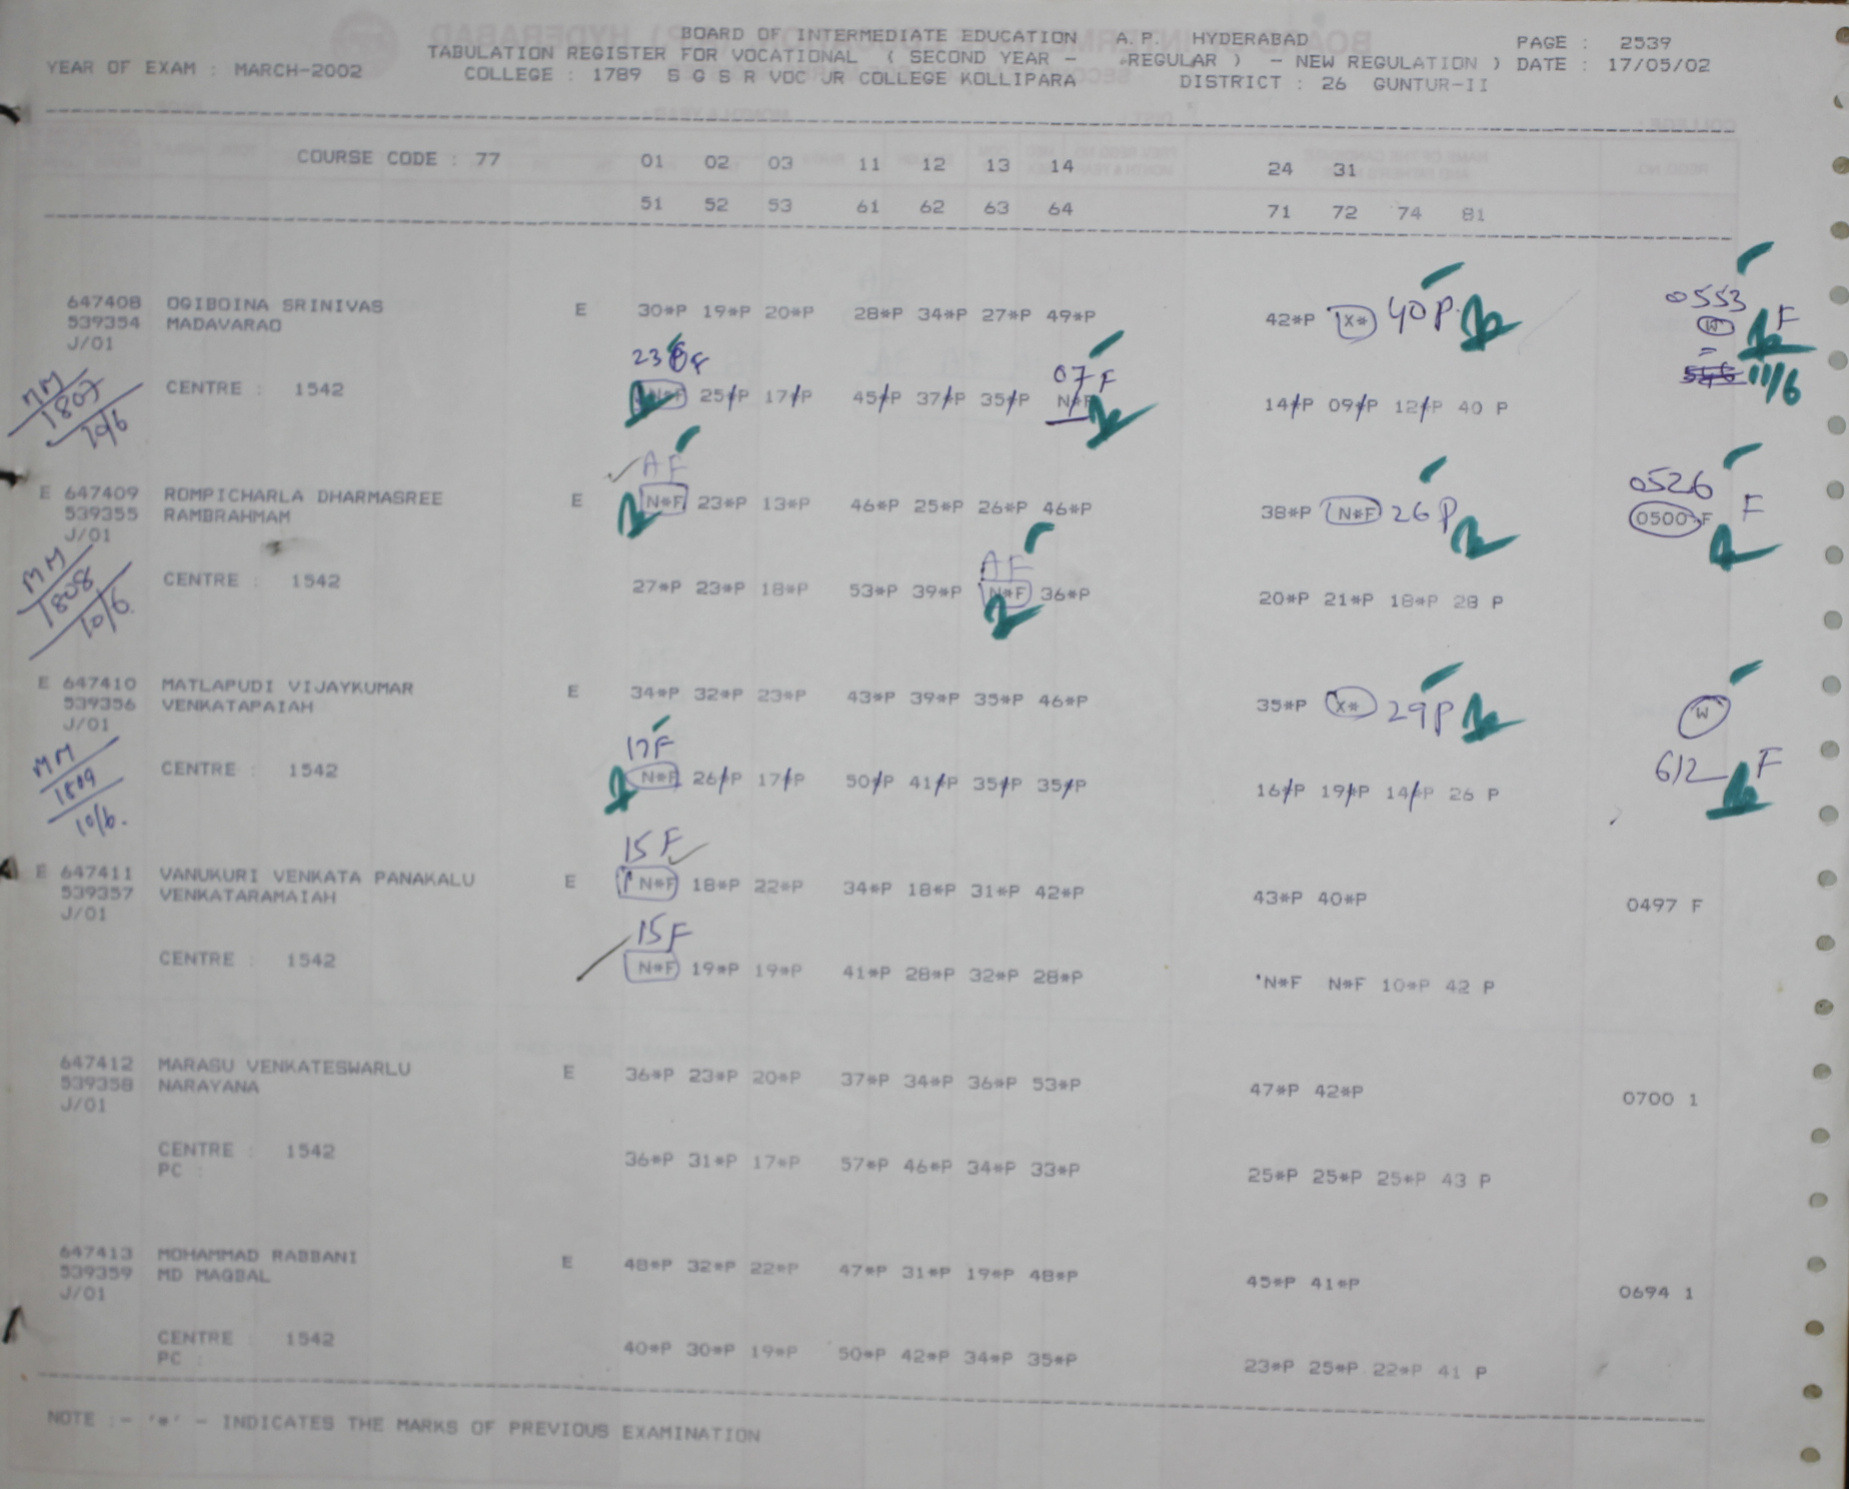 BOARD OF INTERMEDIATE EDUCATION A.P. HYDERABAD PAGE : 2539
TABULATION REGISTER FOR VOCATIONAL ( SECOND YEAR - REGULAR ) - NEW REGULATION ) DATE : 17/05/02
YEAR OF EXAM : MARCH-2002 COLLEGE : 1789 S G S R VOC JR COLLEGE KOLLIPARA DISTRICT : 26 GUNTUR-II
COURSE CODE : 77 01 02 03 11 12 13 14 24 31
51 52 53 61 62 63 64 71 72 74 81
0553
647408 OGIBOINA SRINIVAS E 30*P 19*P 20*P 28*P 34*P 27*P 49*P 42*P X* 40P. W F
539354 MADAVARAO
J/01
23 F 07 F 11/6
CENTRE : 1542 N*F 25*P 17*P 45*P 37*P 35*P N*F 14*P 09*P 12*P 40 P
MM
1807
10/6
AF
0526
E 647409 ROMPICHARLA DHARMASREE E N*F 23*P 13*P 46*P 25*P 26*P 46*P 38*P N*F 26P 0500 F F
539355 RAMBRAHMAM
J/01
AF
CENTRE : 1542 27*P 23*P 18*P 53*P 39*P N*F 36*P 20*P 21*P 18*P 28 P
MM
1808
10/6.
E 647410 MATLAPUDI VIJAYKUMAR E 34*P 32*P 23*P 43*P 39*P 35*P 46*P 35*P X* 29P W
539356 VENKATAPAIAH
J/01
17F
612 F
CENTRE : 1542 N*F 26*P 17*P 50*P 41*P 35*P 35*P 16*P 19*P 14*P 26 P
MM
1809
10/6.
15F
E 647411 VANUKURI VENKATA PANAKALU E N*F 18*P 22*P 34*P 18*P 31*P 42*P 43*P 40*P 0497 F
539357 VENKATARAMAIAH
J/01
15F
CENTRE : 1542 N*F 19*P 19*P 41*P 28*P 32*P 28*P N*F N*F 10*P 42 P
647412 MARASU VENKATESWARLU E 36*P 23*P 20*P 37*P 34*P 36*P 53*P 47*P 42*P 0700 1
539358 NARAYANA
J/01
CENTRE : 1542 36*P 31*P 17*P 57*P 46*P 34*P 33*P 25*P 25*P 25*P 43 P
PC :
647413 MOHAMMAD RABBANI E 48*P 32*P 22*P 47*P 31*P 19*P 48*P 45*P 41*P 0694 1
539359 MD MAQBAL
J/01
CENTRE : 1542 40*P 30*P 19*P 50*P 42*P 34*P 35*P 23*P 25*P 22*P 41 P
PC :
NOTE :- '*' - INDICATES THE MARKS OF PREVIOUS EXAMINATION